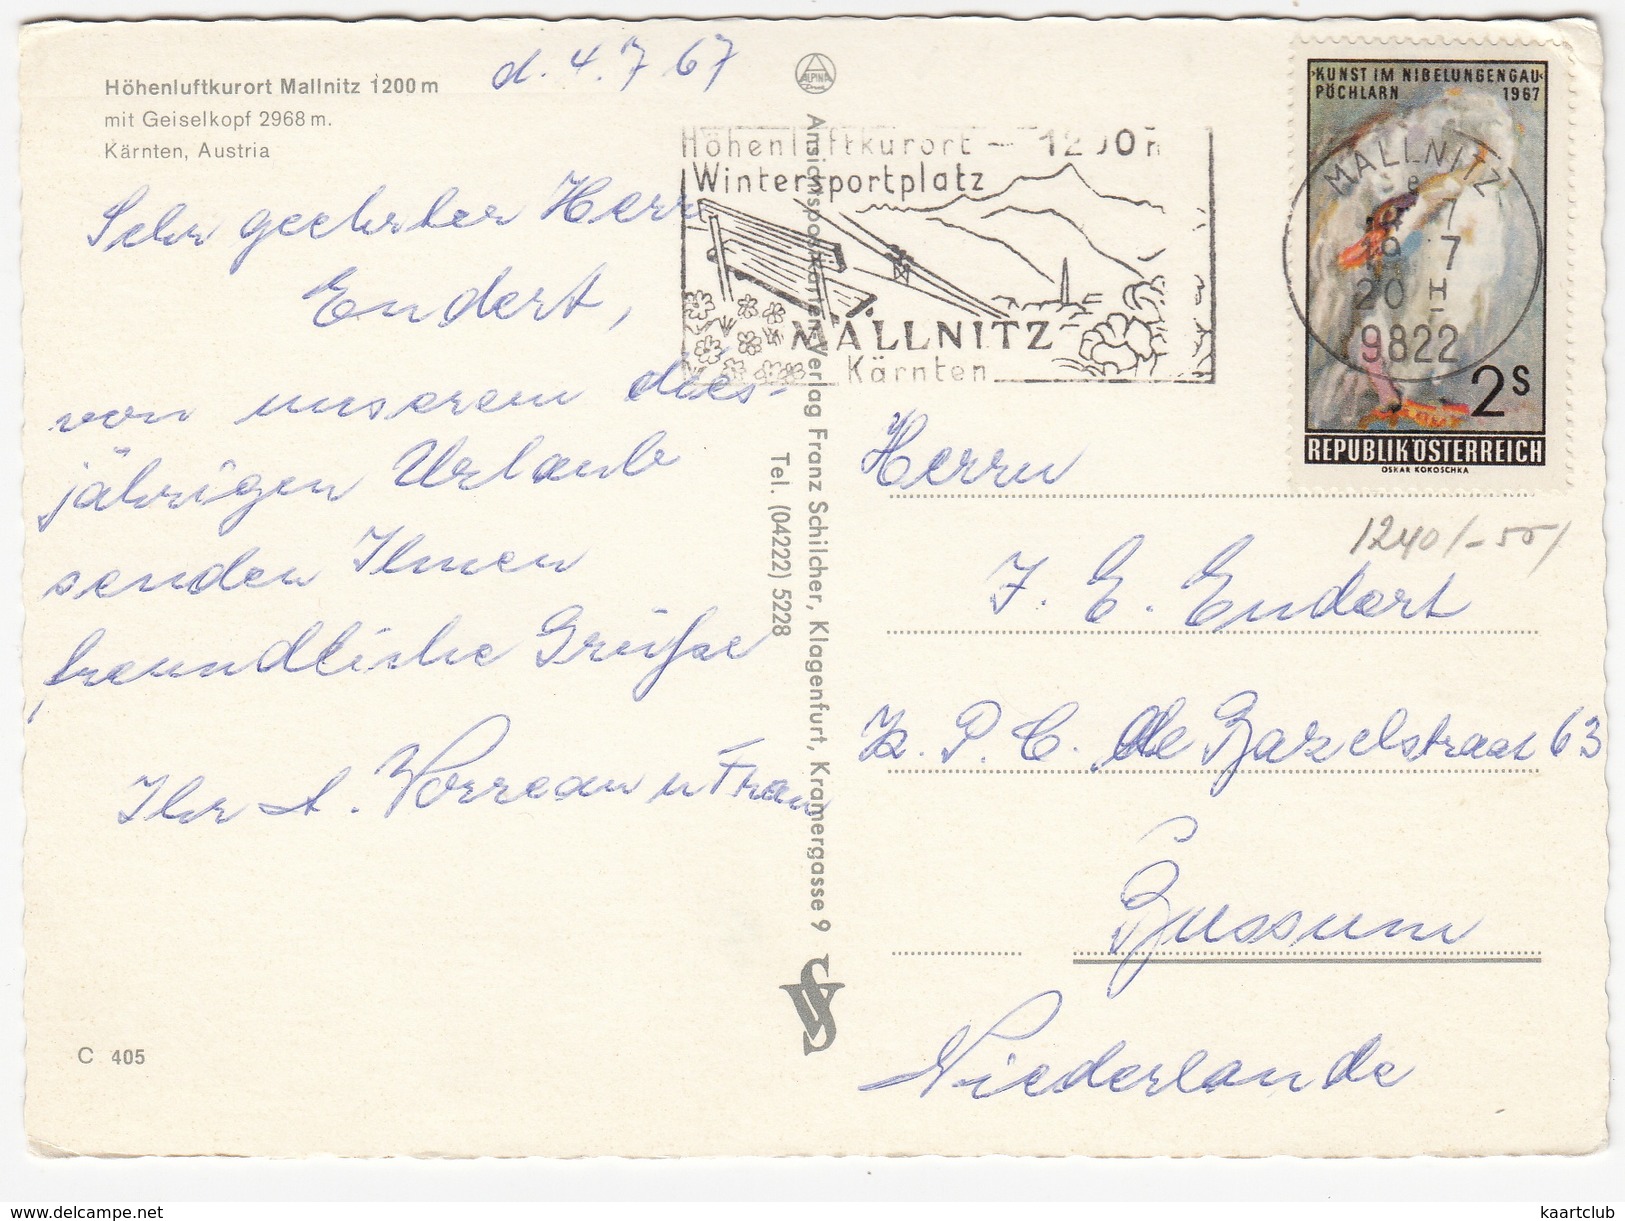 Höhenluftkurort Mallnitz 1200 m
mit Geiselkopf 2968 m.
Kärnten, Austria
d. 4. 7 67
Sehr geehrter Herr
Endert,
von unserem dies-
jährigen Urlaub
senden Ihnen
freundliche Grüße
Ihr A. Worreau u Frau
C 405
ALPINA
Ansichtspostkarten-Verlag Franz Schilcher, Klagenfurt, Kramergasse 9
Tel. (04222) 5228
Höhenluftkurort - 1200 m
Wintersportplatz
MALLNITZ
Kärnten
KUNST IM NIBELUNGENGAU
PÖCHLARN 1967
MALLNITZ
7
19 7
20
9822
2S
REPUBLIK ÖSTERREICH
OSKAR KOKOSCHKA
1240/-50/
Herrn
J. E. Endert
P. C. de Bazelstraat 63
Bussum
Niederlande
http://www.delcampe.net
kaartclub